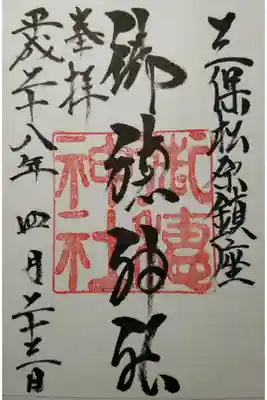 三保松原鎮座
御穂神社
奉拝
平成二十八年四月二十二日
神社